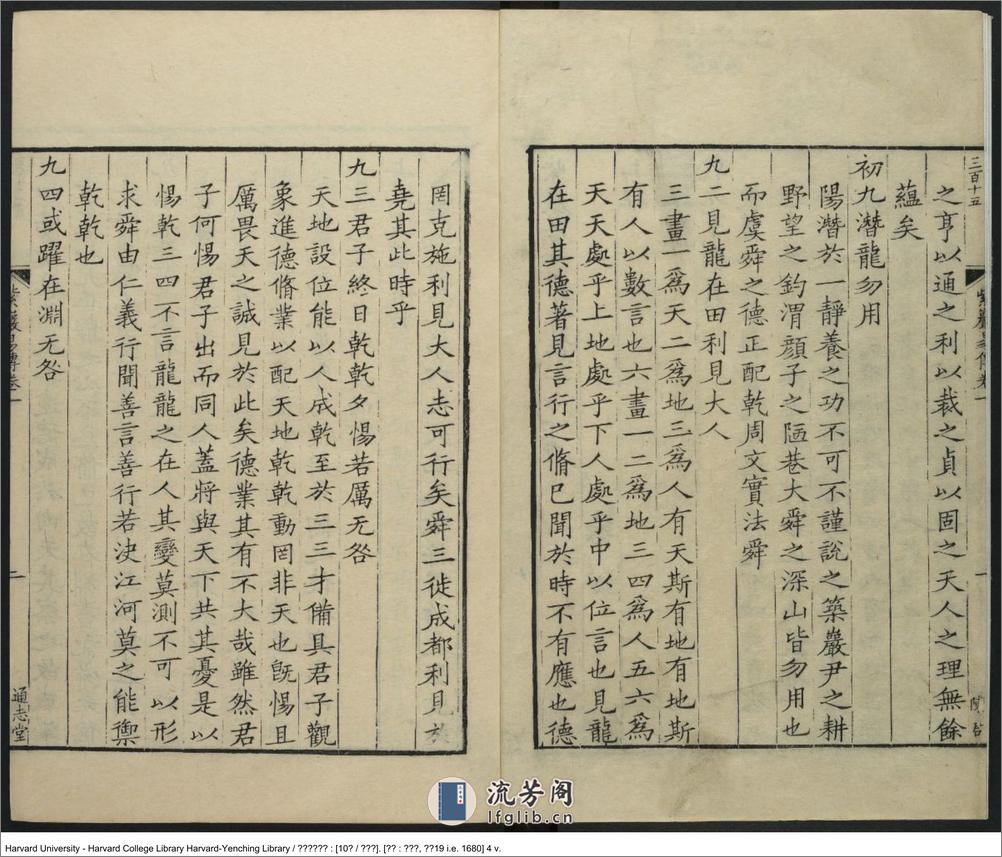 三百十五
之亨以通之利以裁之貞以固之天人之理無餘
蘊矣
初九潛龍勿用
陽潛於一靜養之功不可不謹說之築巖尹之耕
野望之釣渭顏子之陋巷大舜之深山皆勿用也
而虞舜之德正配乾周文實法舜
九二見龍在田利見大人
三畫一爲天二爲地三爲人有天斯有地有地斯
有人以數言也六畫一二爲地三四爲人五六爲
天天處乎上地處乎下人處乎中以位言也見龍
在田其德著見言行之脩已聞於時不有應也德
罔克施利見大人志可行矣舜三徙成都利見於
堯其此時乎
九三君子終日乾乾夕惕若厲无咎
天地設位能以人成乾至於三三才備具君子觀
象進德脩業以配天地乾乾動罔非天也旣惕且
厲畏天之誠見於此矣德業其有不大哉雖然君
子何惕君子出而同人蓋將與天下共其憂是以
惕乾三四不言龍龍之在人其變莫測不可以形
求舜由仁義行聞善言善行若決江河莫之能禦
乾乾也
九四或躍在淵无咎
紫巖易傳卷一
二
通志堂
流芳阁
lfglib.cn
Harvard University - Harvard College Library Harvard-Yenching Library / ?????? : [10? / ???]. [?? : ???, ??19 i.e. 1680] 4 v.